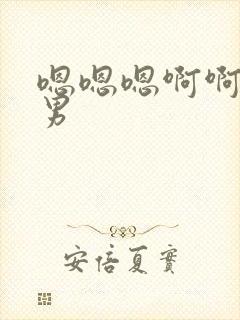 嗯嗯嗯啊啊
男
安倍夏實